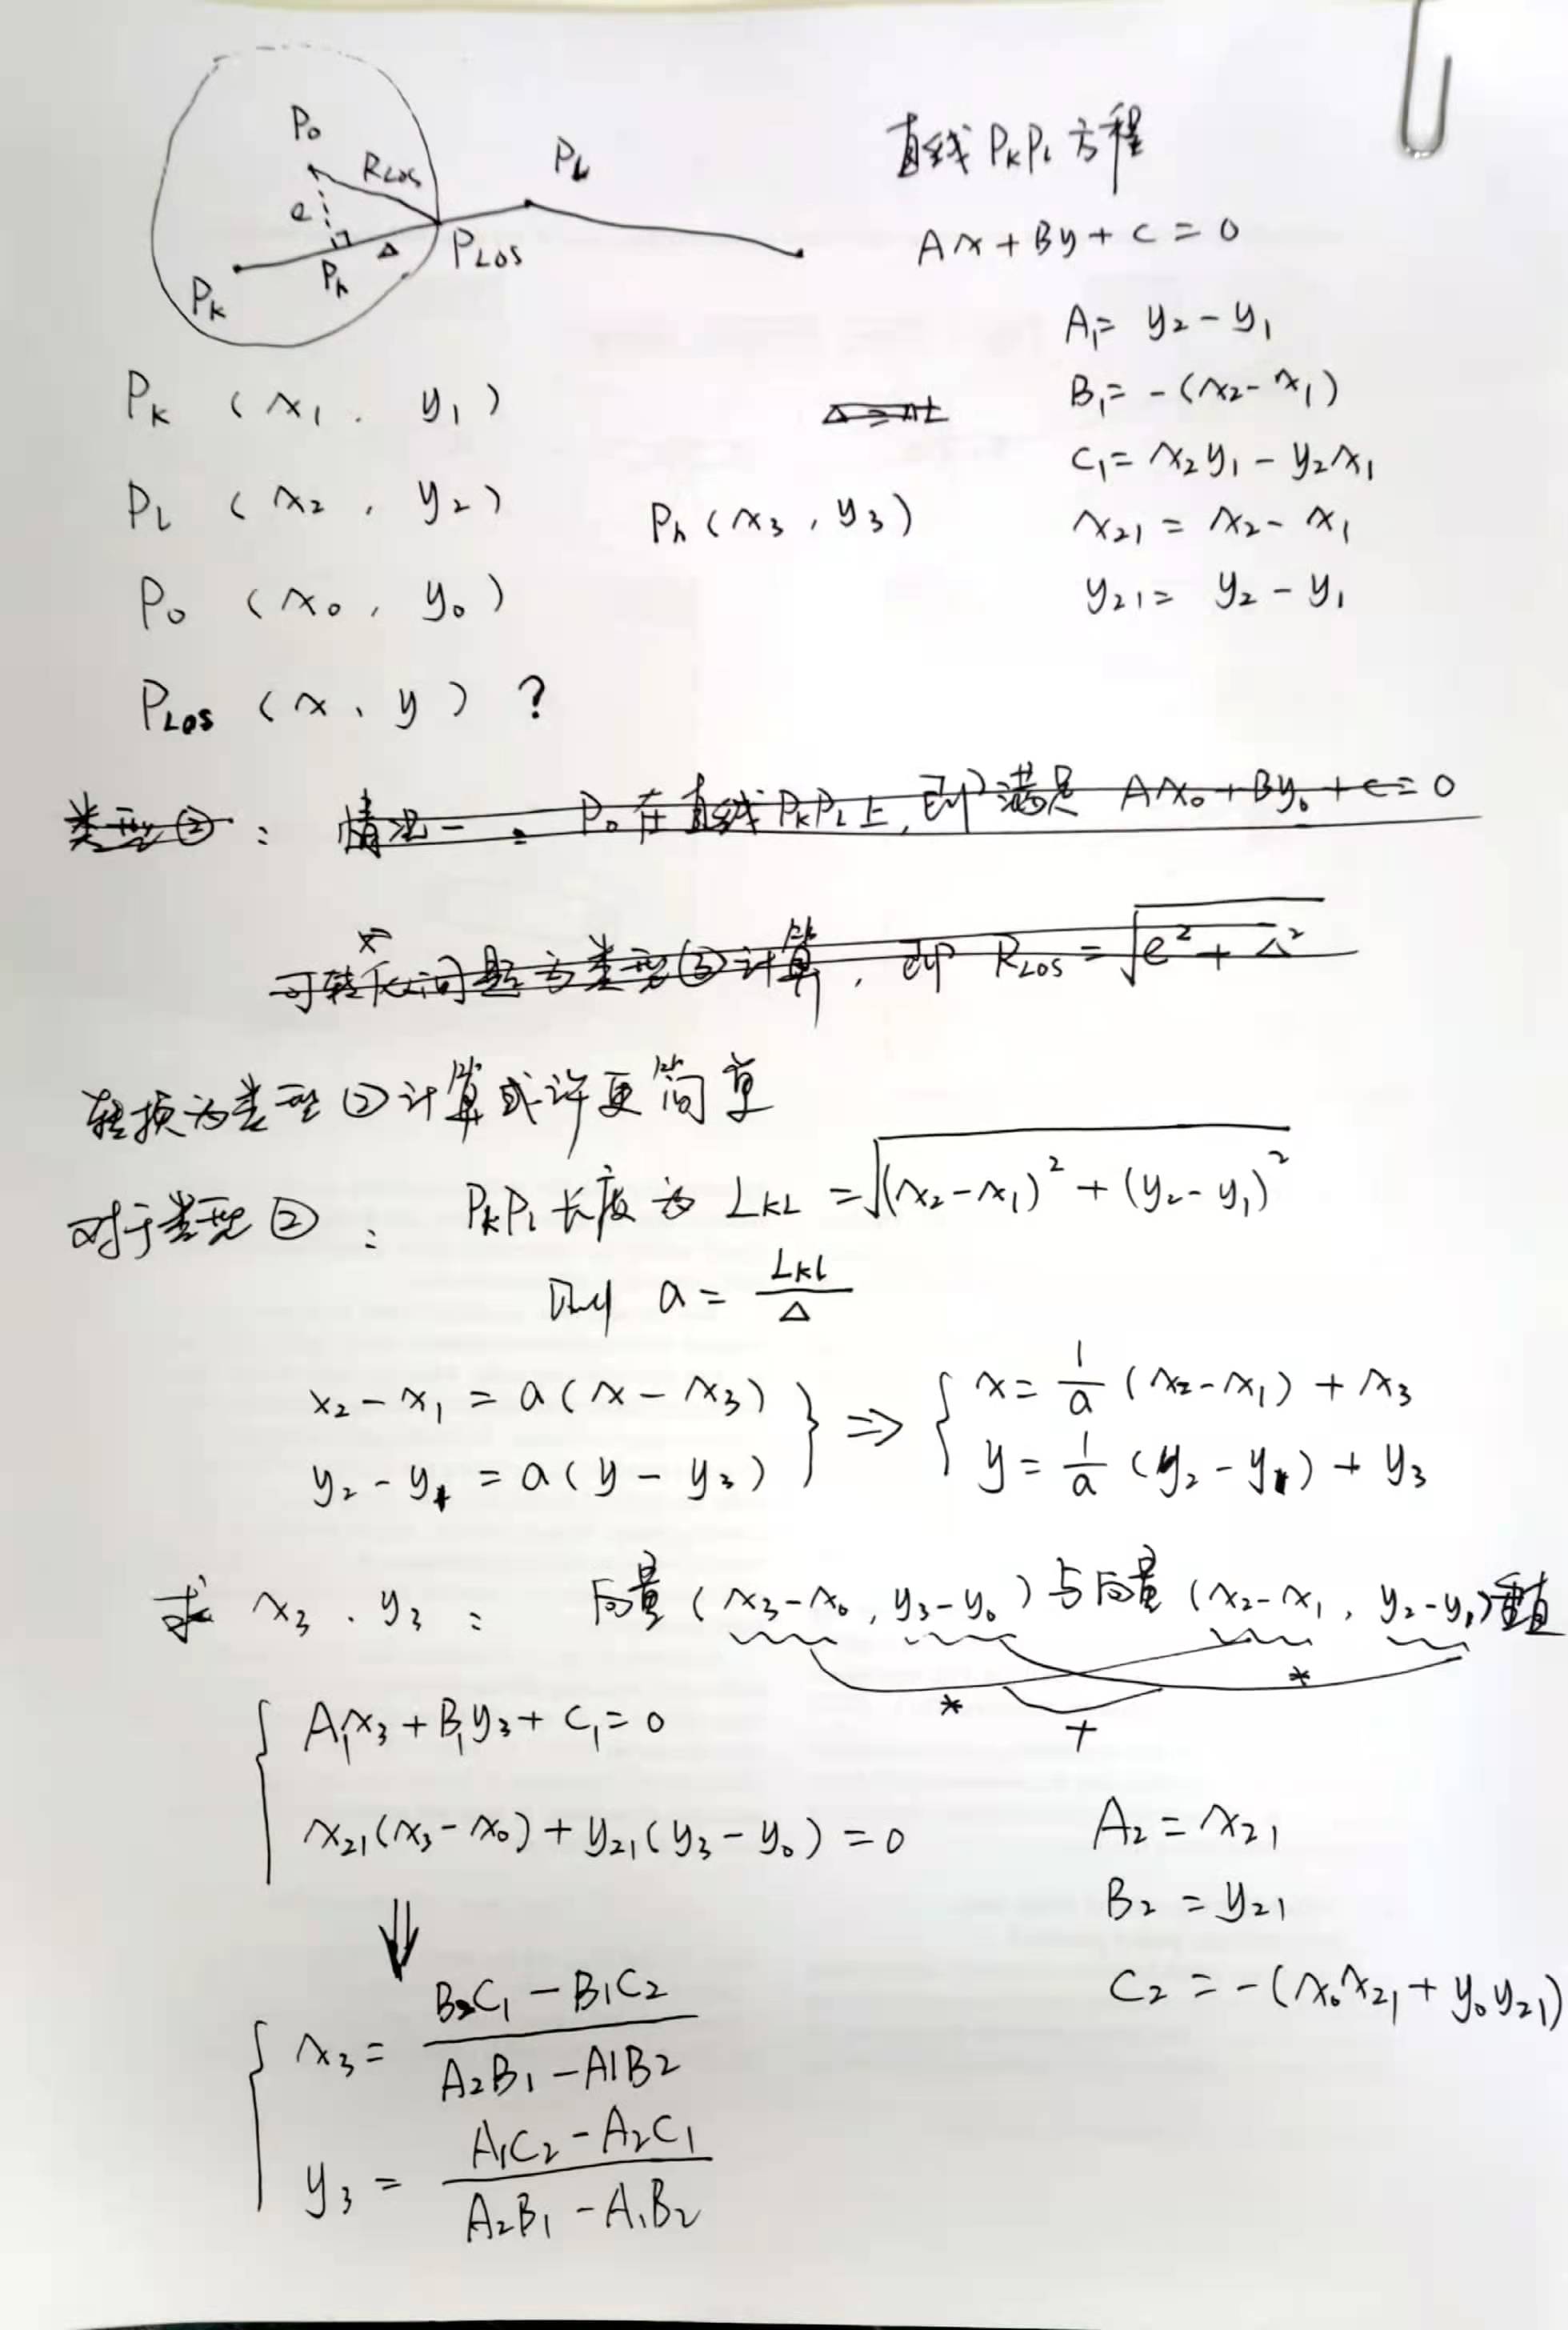 P₀
R_LOS
P_L
e
Δ
P_LOS
P_h
P_k
直线 P_kP_L 方程
Ax + By + C = 0
A₁ = y₂ - y₁
B₁ = -(x₂ - x₁)
C₁ = x₂y₁ - y₂x₁
x₂₁ = x₂ - x₁
y₂₁ = y₂ - y₁
P_k (x₁, y₁)
P_L (x₂, y₂)
P_h (x₃, y₃)
P₀ (x₀, y₀)
P_LOS (x, y) ?
类型②: 情况一. P₀在直线P_kP_L上, 即满足 Ax₀ + By₀ + C = 0
可转化问题为类型③计算, 即 R_LOS = √(e² + Δ²)
转换为类型②计算或许更简单
对于类型②: P_kP_L长度为 L_KL = √((x₂-x₁)² + (y₂-y₁)²)
则 a = L_KL/Δ
x₂ - x₁ = a(x - x₃) } ⇒ { x = 1/a (x₂-x₁) + x₃
y₂ - y₁ = a(y - y₃) } ⇒ { y = 1/a (y₂-y₁) + y₃
求 x₃, y₃: 向量 (x₃-x₀, y₃-y₀) 与向量 (x₂-x₁, y₂-y₁) 垂直
* + *
A₁x₃ + B₁y₃ + C₁ = 0
x₂₁(x₃-x₀) + y₂₁(y₃-y₀) = 0
A₂ = x₂₁
B₂ = y₂₁
C₂ = -(x₀x₂₁ + y₀y₂₁)
⇓
x₃ = (B₂C₁ - B₁C₂)/(A₂B₁ - A₁B₂)
y₃ = (A₁C₂ - A₂C₁)/(A₂B₁ - A₁B₂)